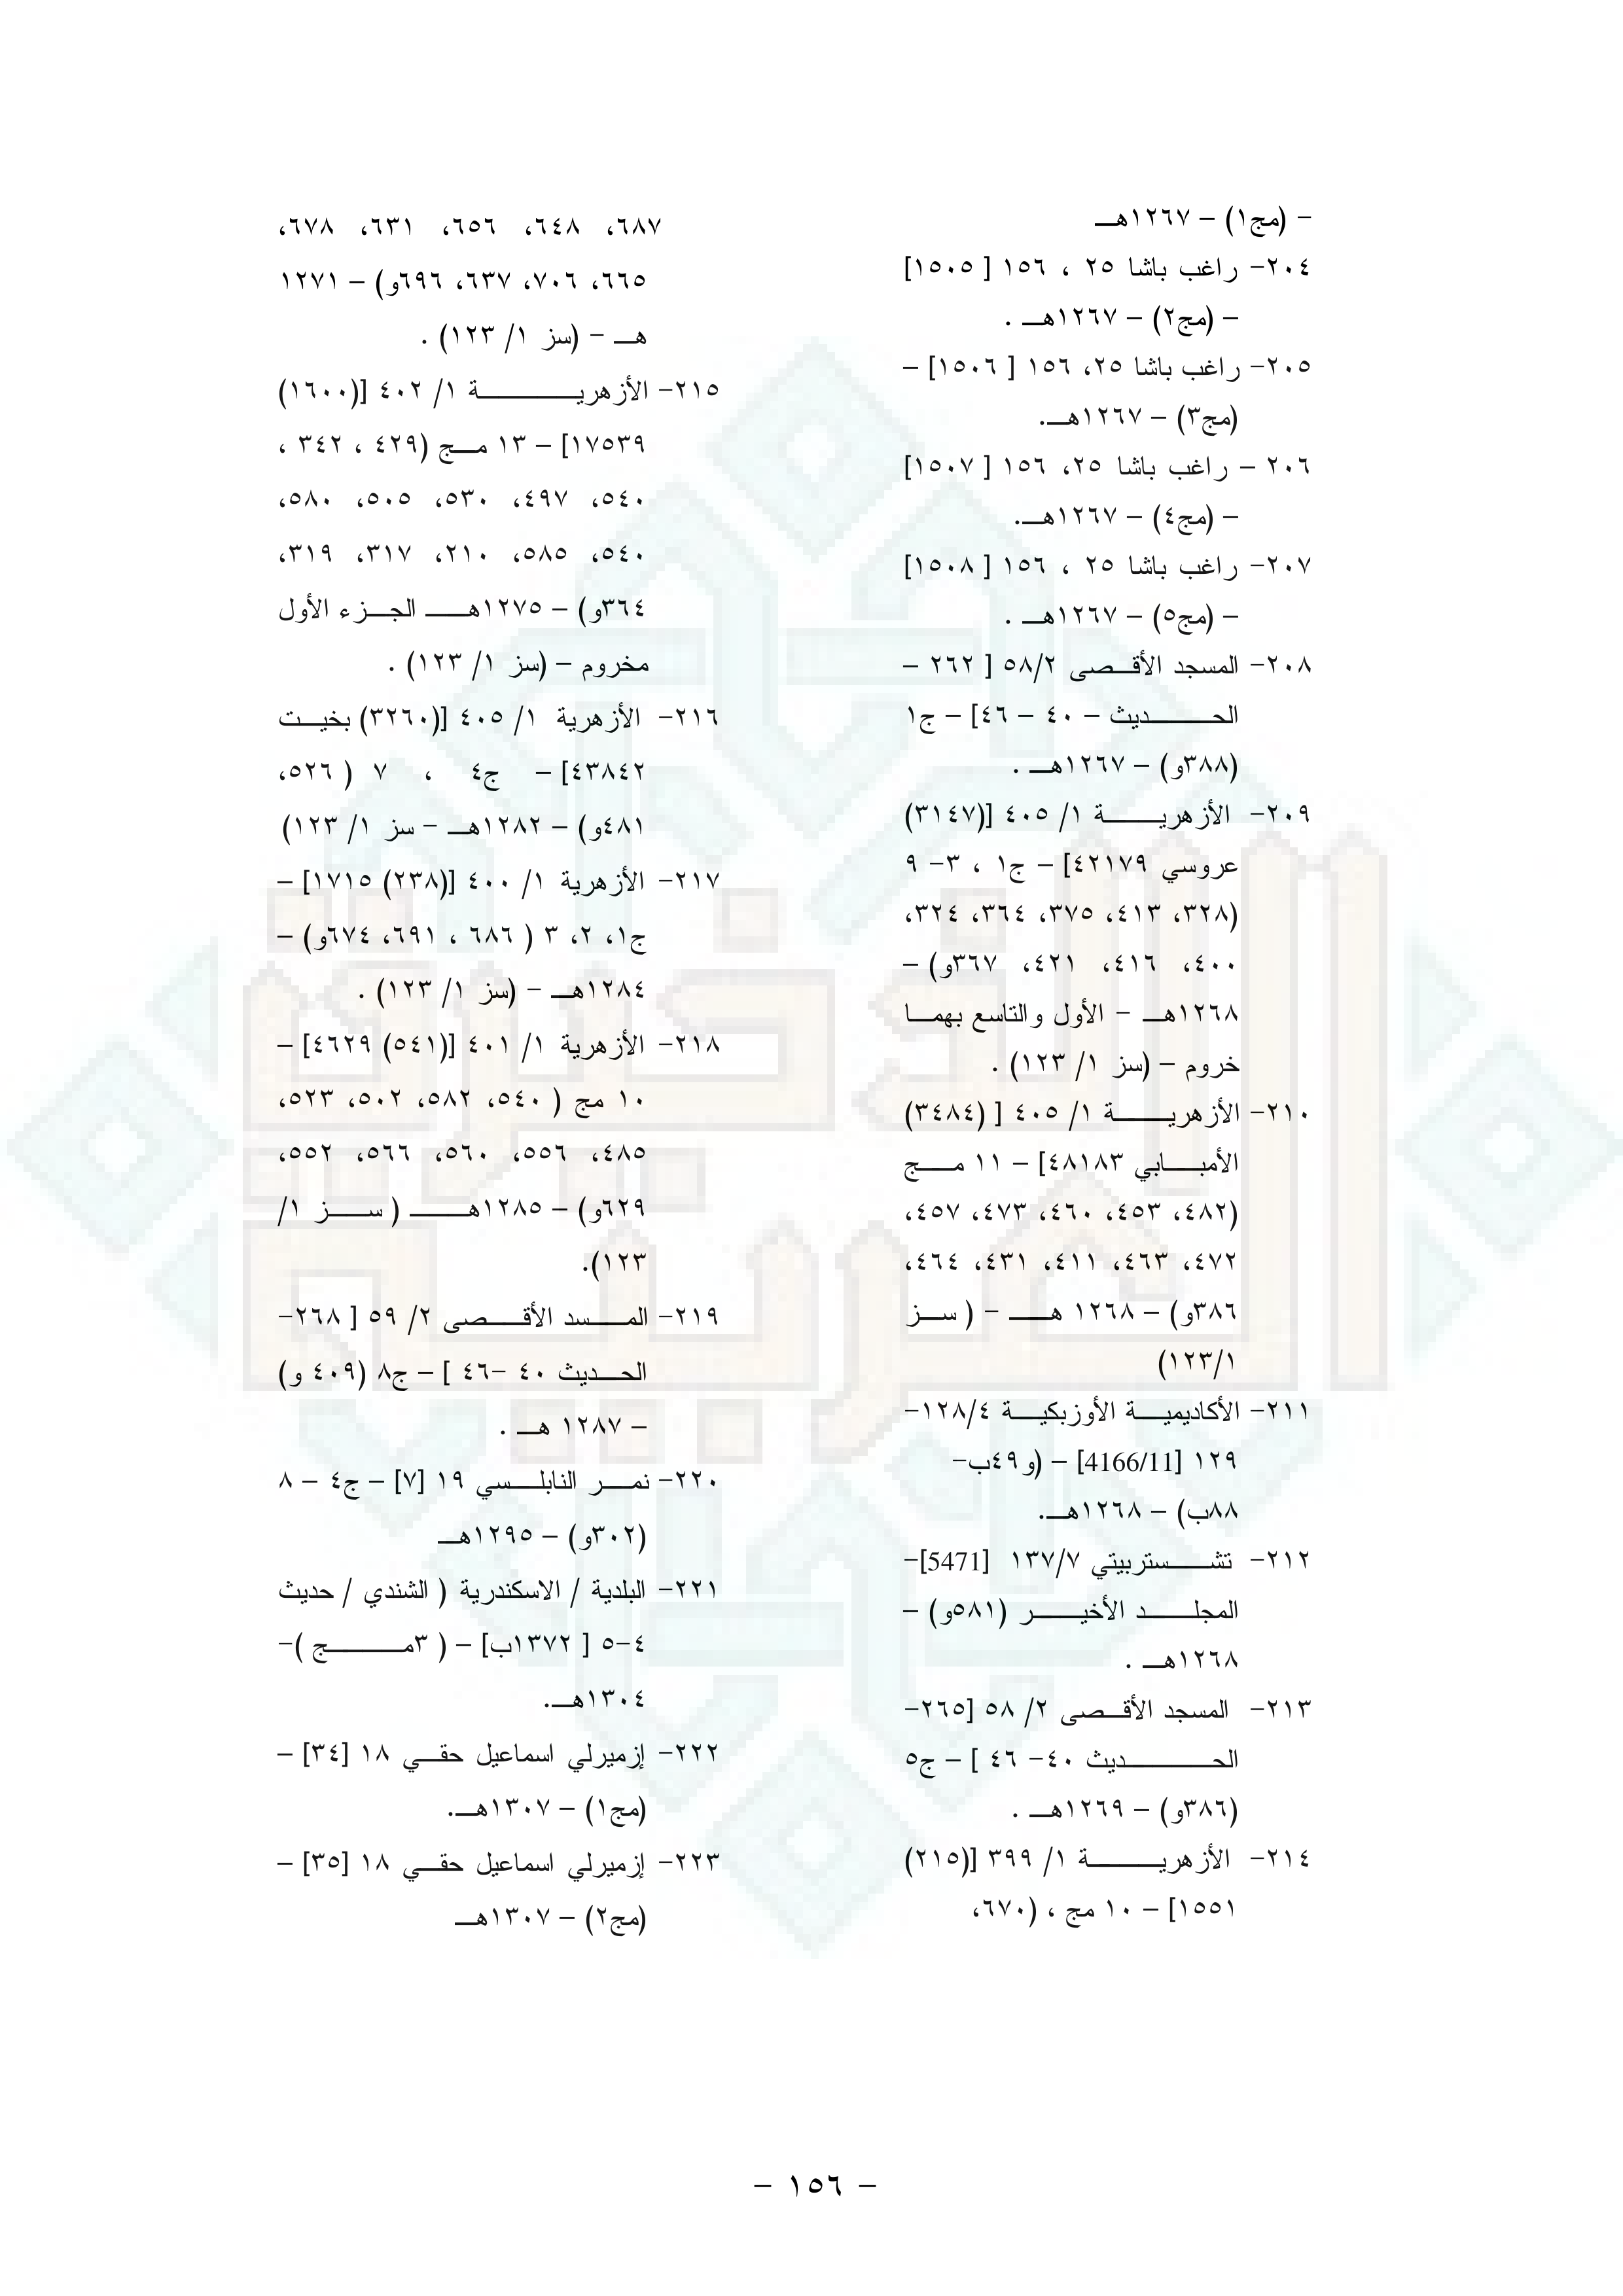 - (مج١) - ١٢٦٧هـ
٢٠٤- راغب باشا ٢٥ ، ١٥٦ [ ١٥٠٥]
- (مج٢) - ١٢٦٧هـ .
٢٠٥- راغب باشا ٢٥، ١٥٦ [ ١٥٠٦] -
(مج٣) - ١٢٦٧هـ.
٢٠٦ - راغب باشا ٢٥، ١٥٦ [ ١٥٠٧]
- (مج٤) - ١٢٦٧هـ.
٢٠٧- راغب باشا ٢٥ ، ١٥٦ [ ١٥٠٨]
- (مج٥) - ١٢٦٧هـ .
٢٠٨- المسجد الأقصى ٥٨/٢ [ ٢٦٢ -
الحديث - ٤٠ - ٤٦] - ج١
(٣٨٨و) - ١٢٦٧هـ .
٢٠٩- الأزهرية ١/ ٤٠٥ [(٣١٤٧)
عروسي ٤٢١٧٩] - ج١ ، ٣- ٩
(٣٢٨، ٤١٣، ٣٧٥، ٣٦٤، ٣٢٤،
٤٠٠، ٤١٦، ٤٢١، ٣٦٧و) -
١٢٦٨هـ - الأول والتاسع بهما
خروم - (سز ١/ ١٢٣) .
٢١٠- الأزهرية ١/ ٤٠٥ [ (٣٤٨٤)
الأمبابي ٤٨١٨٣] - ١١ مج
(٤٨٢، ٤٥٣، ٤٦٠، ٤٧٣، ٤٥٧،
٤٧٢، ٤٦٣، ٤١١، ٤٣١، ٤٦٤،
٣٨٦و) - ١٢٦٨ هـ - ( سز
١/١٢٣)
٢١١- الأكاديمية الأوزبكية ١٢٨/٤-
١٢٩ [4166/11] - (و٤٩ب-
٨٨ب) - ١٢٦٨هـ.
٢١٢- تشستربيتي ١٣٧/٧ [5471]-
المجلد الأخير (٥٨١و) -
١٢٦٨هـ .
٢١٣- المسجد الأقصى ٢/ ٥٨ [٢٦٥-
الحديث ٤٠- ٤٦ ] - ج٥
(٣٨٦و) - ١٢٦٩هـ .
٢١٤- الأزهرية ١/ ٣٩٩ [(٢١٥)
١٥٥١] - ١٠ مج ، (٦٧٠،
٦٨٧، ٦٤٨، ٦٥٦، ٦٣١، ٦٧٨،
٦٦٥، ٧٠٦، ٦٣٧، ٦٩٦و) - ١٢٧١
هـ - (سز ١/ ١٢٣) .
٢١٥- الأزهرية ١/ ٤٠٢ [(١٦٠٠)
١٧٥٣٩] - ١٣ مج (٤٢٩ ، ٣٤٢ ،
٥٤٠، ٤٩٧، ٥٣٠، ٥٠٥، ٥٨٠،
٥٤٠، ٥٨٥، ٢١٠، ٣١٧، ٣١٩،
٣٦٤و) - ١٢٧٥هـ الجزء الأول
مخروم - (سز ١/ ١٢٣) .
٢١٦- الأزهرية ١/ ٤٠٥ [(٣٢٦٠) بخيت
٤٣٨٤٢] - ج٤ ، ٧ ( ٥٢٦،
٤٨١و) - ١٢٨٢هـ - سز ١/ ١٢٣)
٢١٧- الأزهرية ١/ ٤٠٠ [(٢٣٨) ١٧١٥] -
ج١، ٢، ٣ ( ٦٨٦ ، ٦٩١، ٦٧٤و) -
١٢٨٤هـ - (سز ١/ ١٢٣) .
٢١٨- الأزهرية ١/ ٤٠١ [(٥٤١) ٤٦٢٩] -
١٠ مج ( ٥٤٠، ٥٨٢، ٥٠٢، ٥٢٣،
٤٨٥، ٥٥٦، ٥٦٠، ٥٦٦، ٥٥٢،
٦٢٩و) - ١٢٨٥هـ ( سز ١/
١٢٣).
٢١٩- المسد الأقصى ٢/ ٥٩ [ ٢٦٨-
الحديث ٤٠ -٤٦ ] - ج٨ (٤٠٩ و)
- ١٢٨٧ هـ .
٢٢٠- نمر النابلسي ١٩ [٧] - ج٤ - ٨
(٣٠٢و) - ١٢٩٥هـ
٢٢١- البلدية / الاسكندرية ( الشندي / حديث
٤-٥ [ ١٣٧٢ب] - ( ٣مج )-
١٣٠٤هـ.
٢٢٢- إزميرلي اسماعيل حقي ١٨ [٣٤] -
(مج١) - ١٣٠٧هـ.
٢٢٣- إزميرلي اسماعيل حقي ١٨ [٣٥] -
(مج٢) - ١٣٠٧هـ
- ١٥٦ -